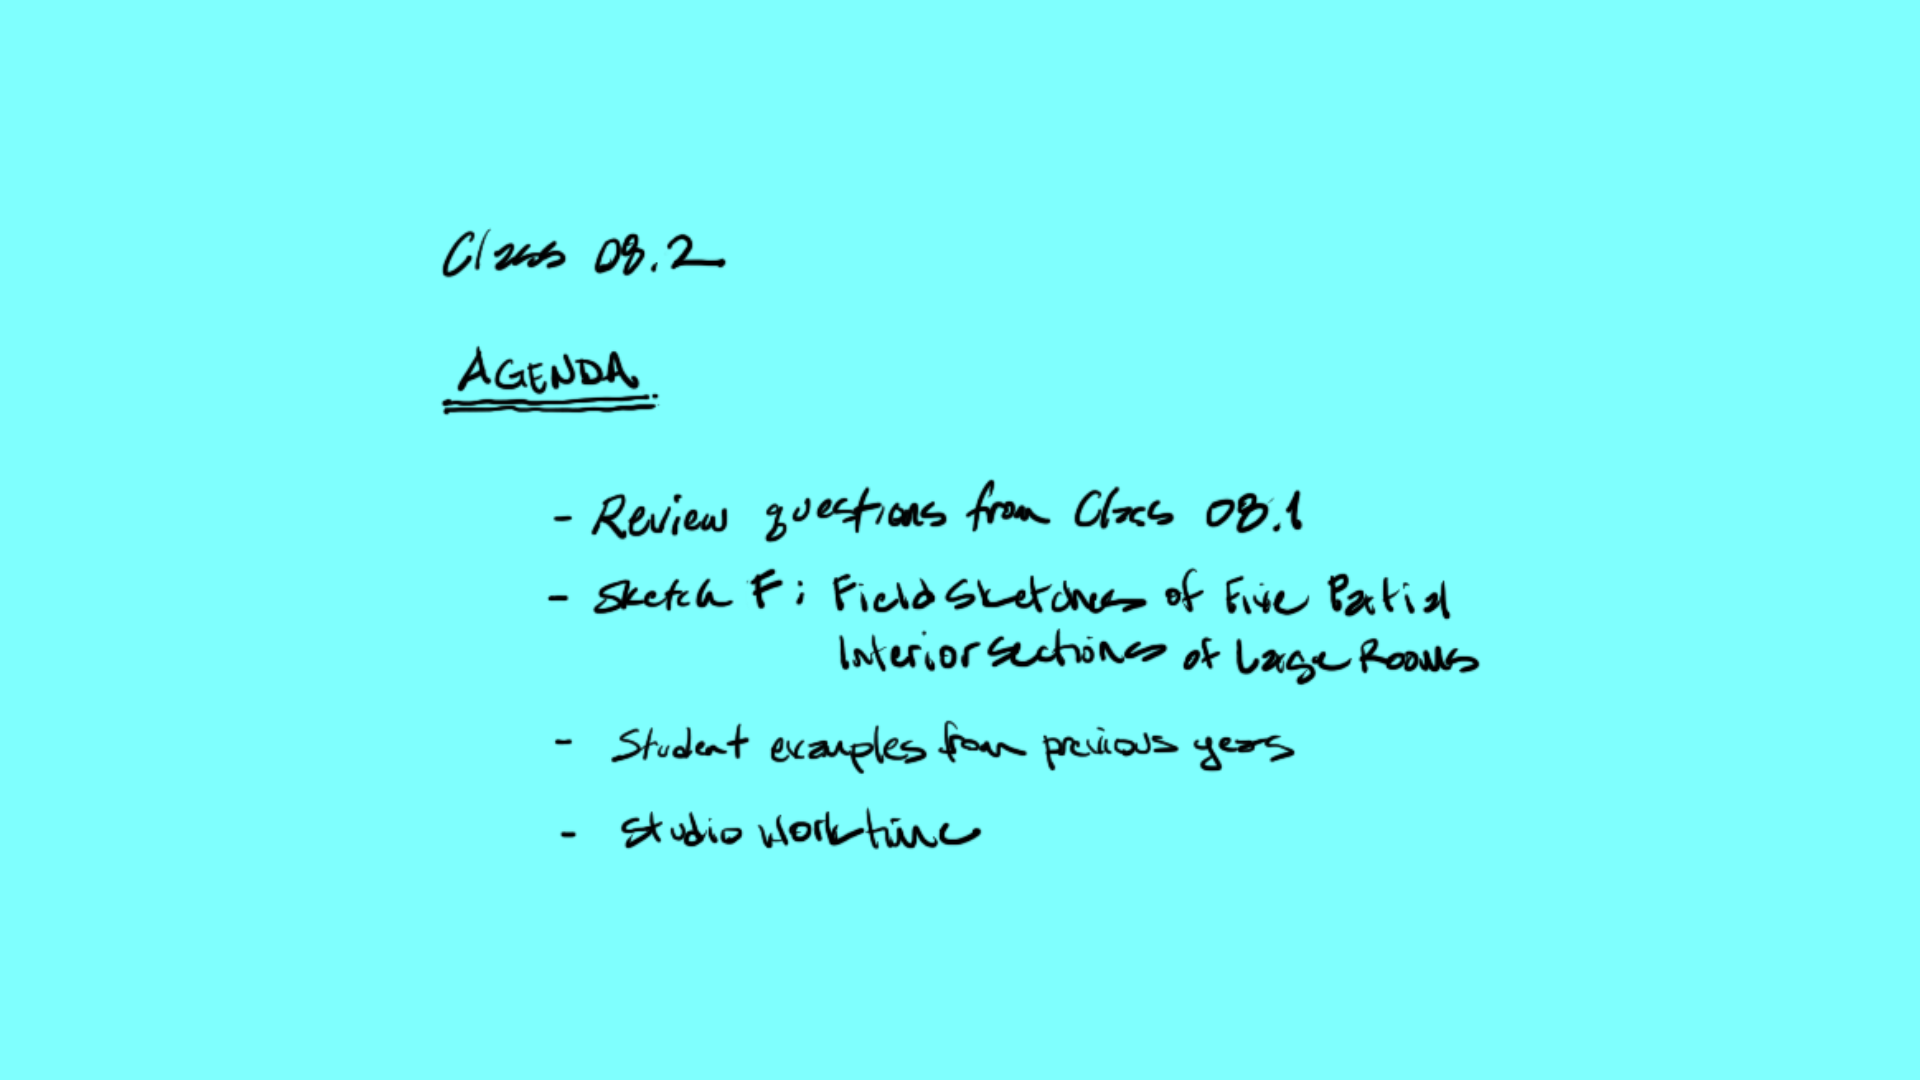 Class 08.2
AGENDA
- Review questions from Class 08.1
- Sketch F: Field Sketches of Five Partial
Interior Sections of Large Rooms
- Student examples from previous years
- Studio work time